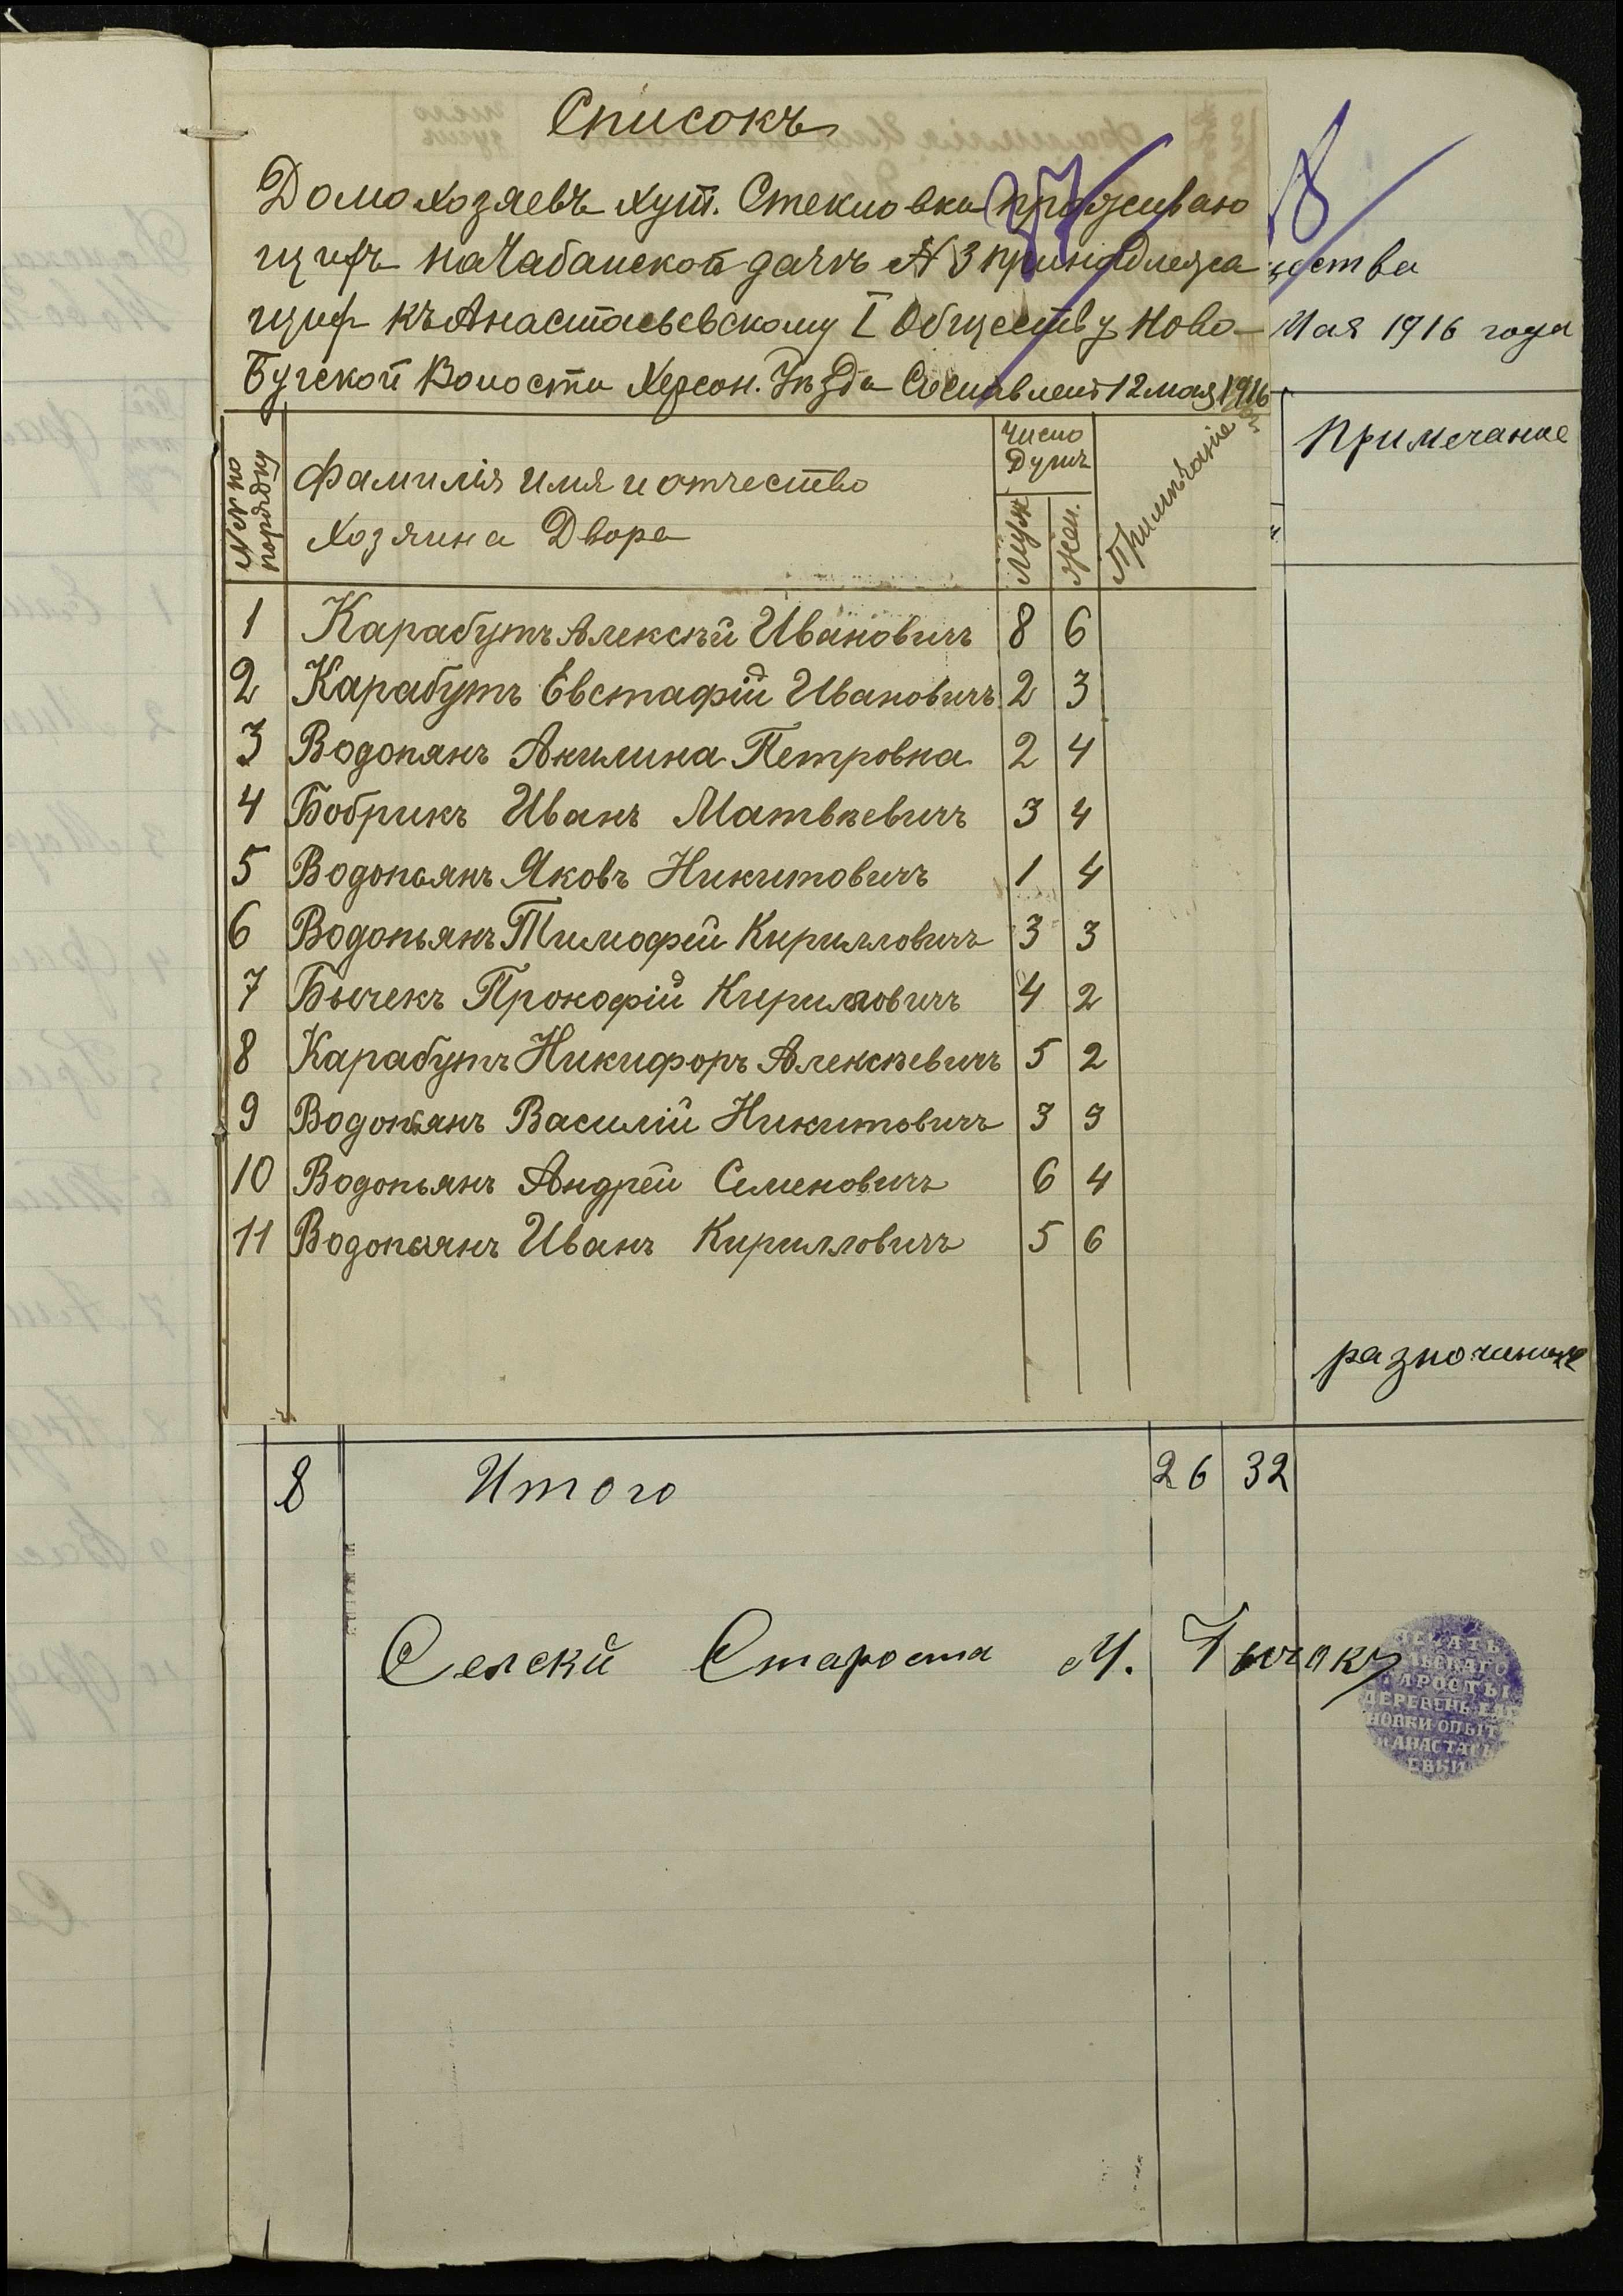 Списокъ
Домохозяевъ хут. Стекловки проживаю
щихъ на Чабанской дачѣ № 3 принадлежа
щих къ Анастасьевскому I Обществу Ново-
Бугской Волости Херсон. Уѣзда Составленъ 12 мая 1916
щества
Мая 1916 года
№№ по порядку
Фамилія имя и отчество
Хозяина Двора
Число Душъ
Муж
Жен.
Примѣчаніе
Примечание
1 Карабутъ Алексѣй Ивановичъ 8 6
2 Карабутъ Евстафій Ивановичъ 2 3
3 Водопянъ Акилина Петровна 2 4
4 Бобрикъ Иванъ Матвѣевичъ 3 4
5 Водопьянъ Яковъ Никитовичъ 1 4
6 Водопьянъ Тимофей Кирилловичъ 3 3
7 Бычекъ Прокофій Кирилловичъ 4 2
8 Карабутъ Никифоръ Алексѣевичъ 5 2
9 Водопьянъ Василій Никитовичъ 3 3
10 Водопьянъ Андрей Семеновичъ 6 4
11 Водопьянъ Иванъ Кирилловичъ 5 6
разночинцы
8 Итого 26 32
Селский Староста М.
ПЕЧАТЬ
ЛЬСКАГО
АРОСТЫ
ДЕРЕВЕНЬ
НОВКИ ОПЫТ
И АНАСТАСЬ
ЕВКИ